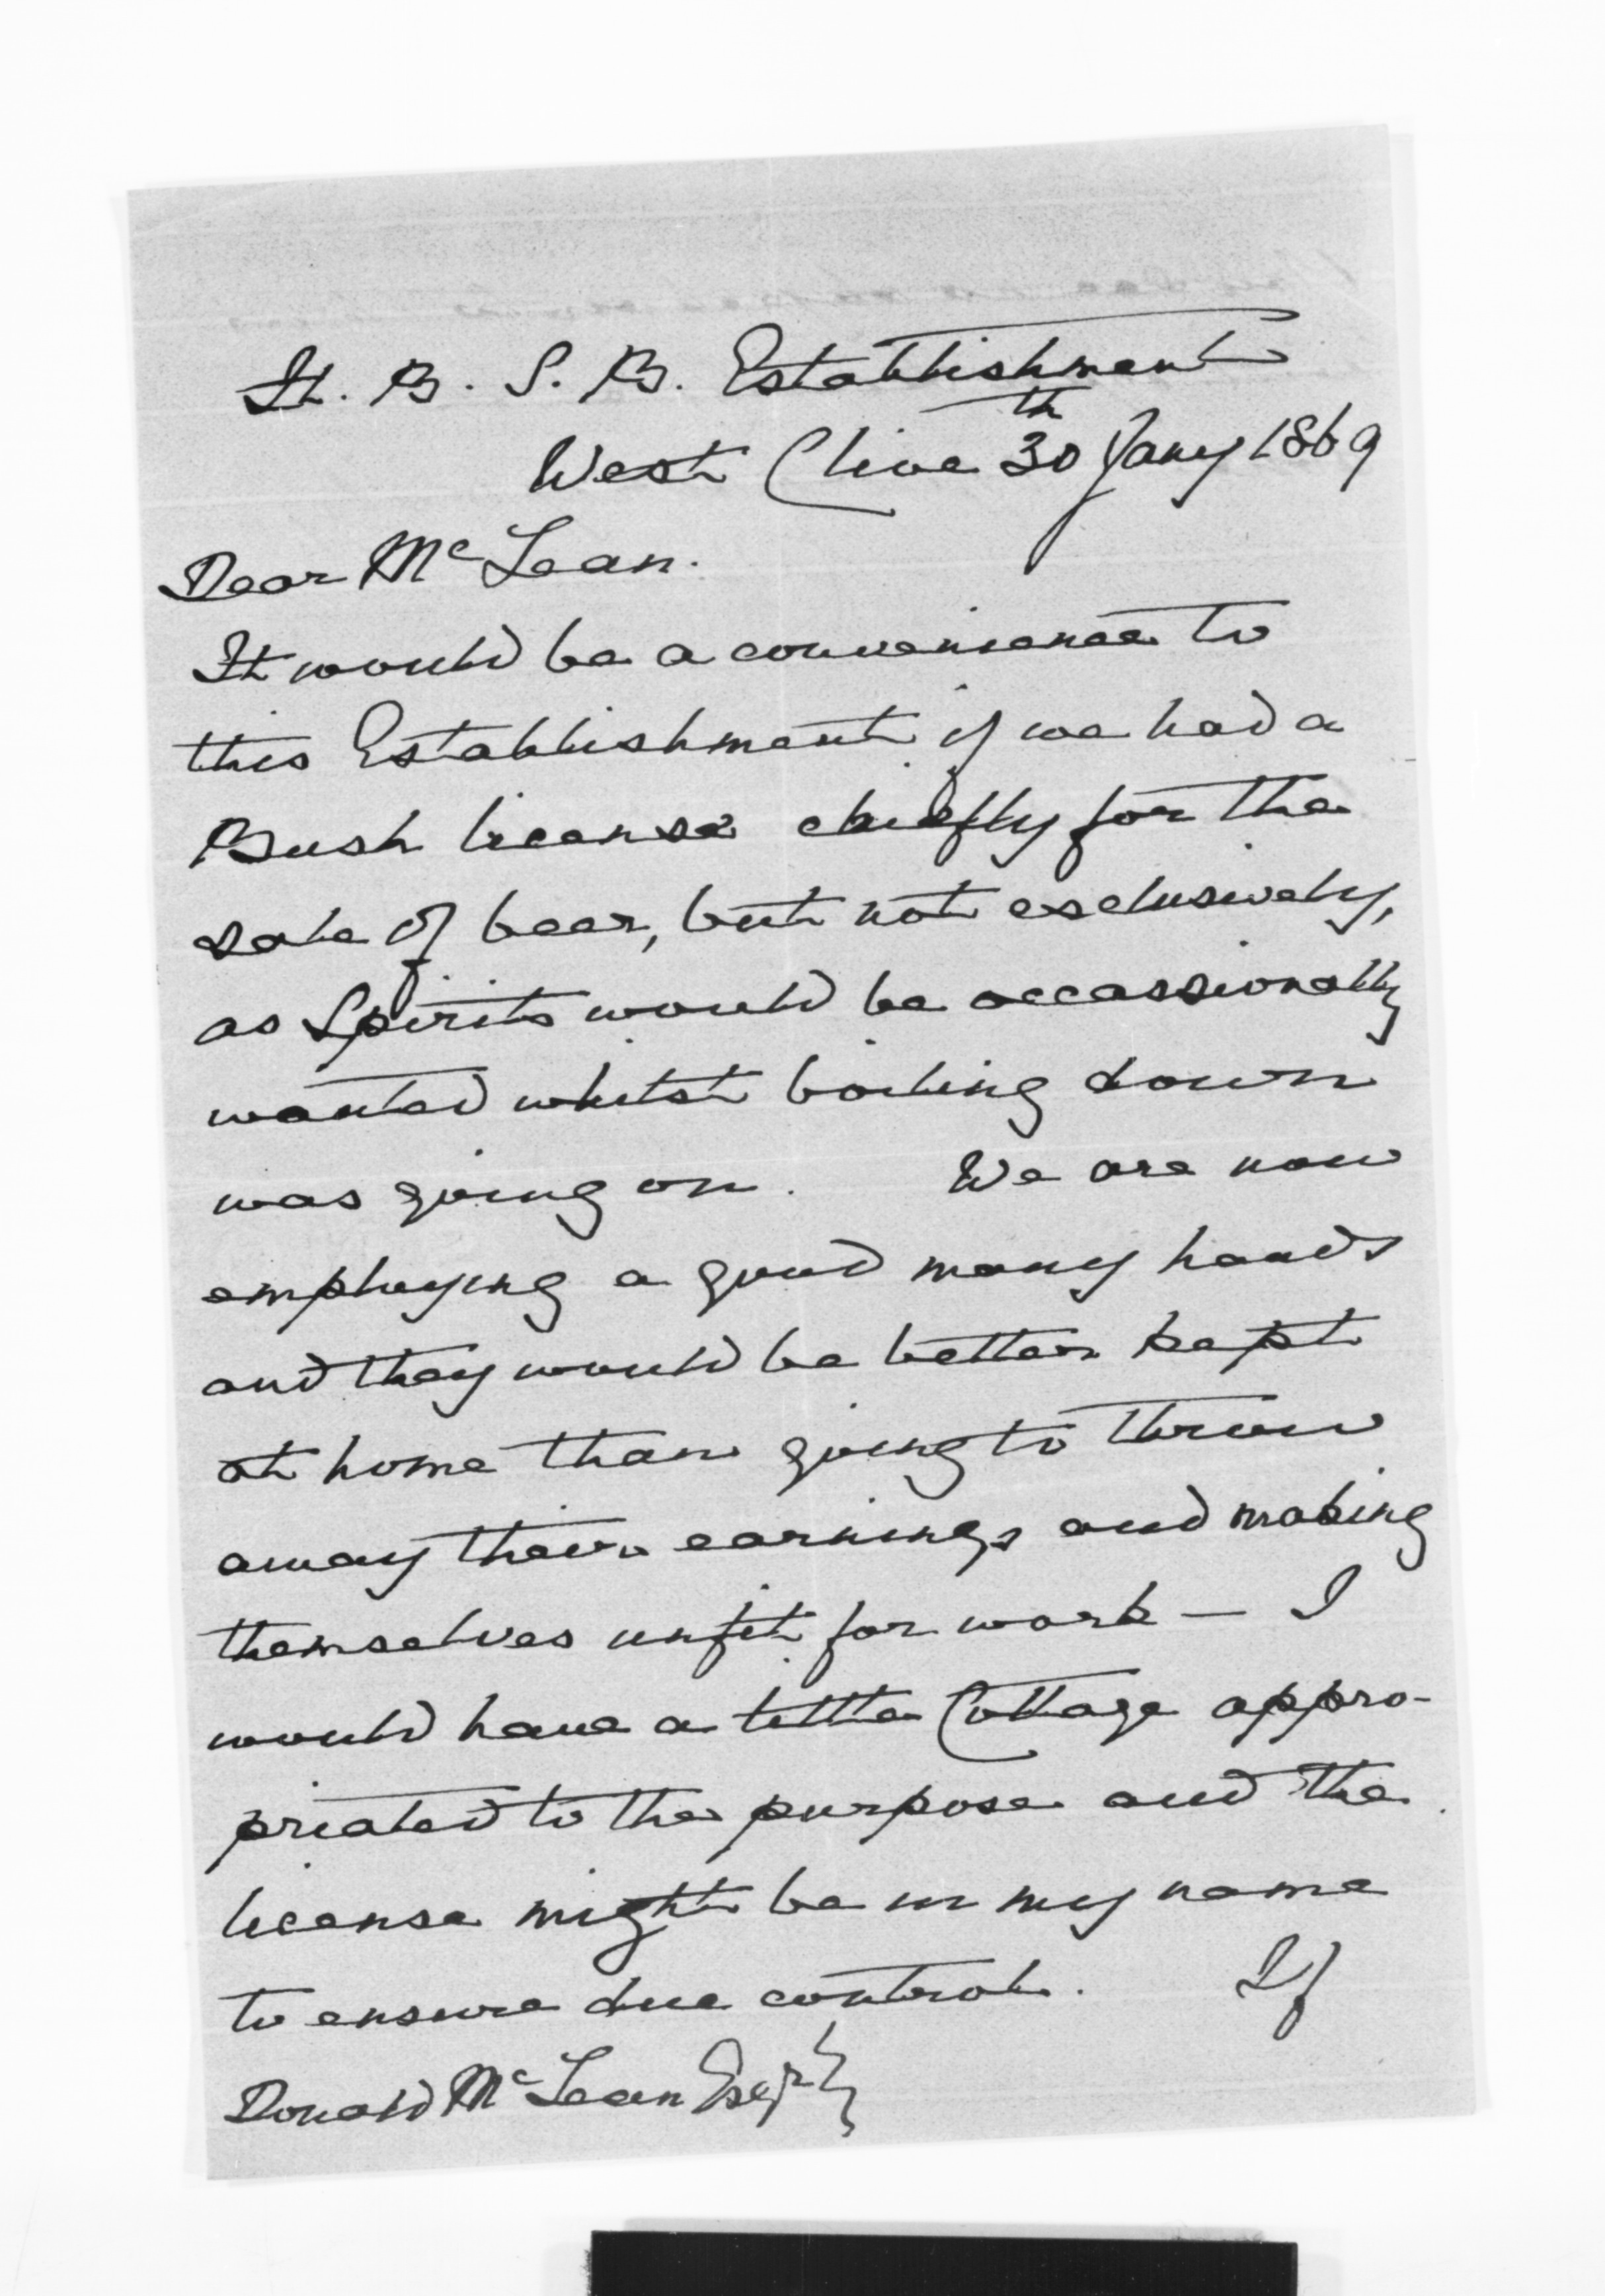 H. B. S. B. Establishment
West Clive 30th Jany 1869
Dear McLean.
It would be a convenience to
this Establishment if we had a
Bush license chiefly for the
sale of beer, but not exclusively,
as Spirits would be occassionally
wanted whilst boiling down
was going on. We are now
employing a good many hands
and they would be better kept
at home than going to throw
away their earnings and making
themselves unfit for work — I
would have a little Cottage appro-
priated to the purpose and the
license might be in my name
to ensure due control. If
Donald McLean Esqr}